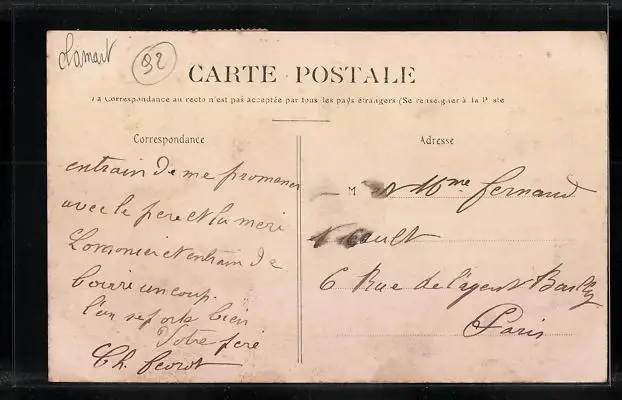 Clamart
92
CARTE POSTALE
La Correspondance au recto n'est pas acceptée par tous les pays étrangers (Se renseigner à la Poste
Correspondance
entrain de me promener
avec le pere et la meri
et entrain de
boire un coup.
l'on se porte bien
Votre pere
Ch.
Adresse
M et Mme fernand
6 Rue de l'agent Bailly
Paris